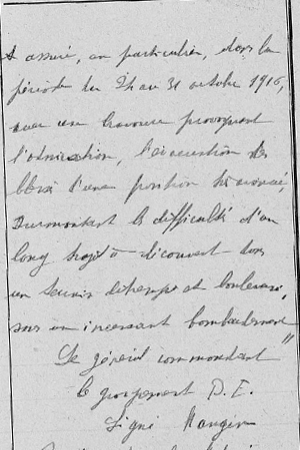 A assuré, en particulier, dans la
période du 24 au 31 octobre 1916,
avec une bravoure provoquant
l'admiration, l'évacuation des
blessés d'une position très avancée,
surmontant les difficultés d'un
long trajet à découvert dans
un terrain détrempé et bouleversé,
sous un incessant bombardement"
Le général commandant
le groupement D. E.
Signé Mangin